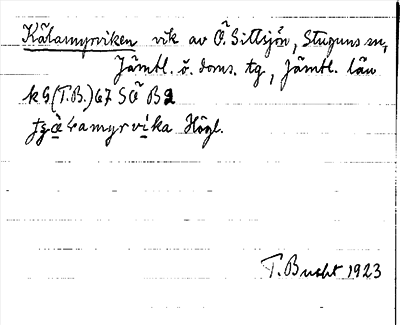 Kälamyrviken vik av Ö. Sittsjön, Stuguns sn,
Jämtl. ö. doms. tg, Jämtl. län
k G (T.B.) 67 SÖ B2
Högl.
T. Bucht 1923